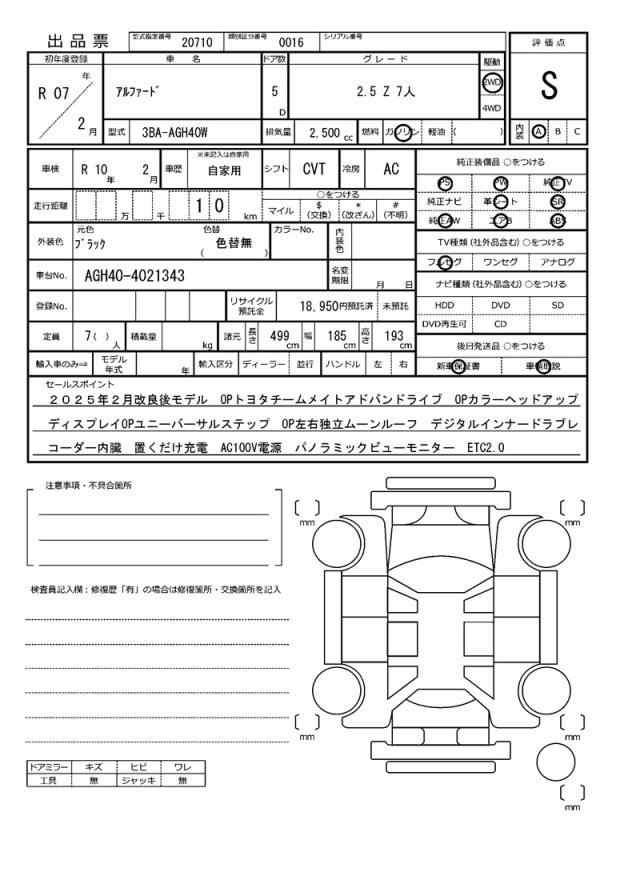 出品票 型式指定番号 20710 類別区分番号 0016 シリアル番号
初年度登録 車名 ドア数 グレード 駆動 評価点
R 07 年 2 月 アルファード 5 D 2.5 Z 7人 2WD 4WD S
型式 3BA-AGH40W 排気量 2,500 cc 燃料 ガソリン 軽油 ( ) 内装 A B C
車検 R 10 年 2 月 車歴 ※未記入は自家用 自家用 シフト CVT 冷房 AC 純正装備品 ○をつける
PS PW 純正TV
走行距離 万 千 1 0 km ○をつける
マイル $ (交換) * (改ざん) # (不明)
純正ナビ 革シート SR
純正AW エアB ABS
外装色 元色 ブラック 色替 ( 色替無 ) カラーNo. 内装色
TV種類 (社外品含む) ○をつける
フルセグ ワンセグ アナログ
車台No. AGH40-4021343 名変期限 月 日
ナビ種類 (社外品含む) ○をつける
登録No. リサイクル預託金 18,950円預託済 未預託
HDD DVD SD
DVD再生可 CD
定員 7( ) 人 積載量 kg 諸元 長さ 499 cm 幅 185 cm 高さ 193 cm
後日発送品 ○をつける
輸入車のみ⇒ モデル年式 年 輸入区分 ディーラー 並行 ハンドル 左 右
新車保証書 車輌取説
セールスポイント
2025年2月改良後モデル OPトヨタチームメイトアドバンドライブ OPカラーヘッドアップ
ディスプレイOPユニーバーサルステップ OP左右独立ムーンルーフ デジタルインナードラブレ
コーダー内臓 置くだけ充電 AC100V電源 パノラミックビューモニター ETC2.0
注意事項・不具合箇所
mm mm
検査員記入欄：修復歴「有」の場合は修復箇所・交換箇所を記入
mm mm
ドアミラー キズ ヒビ ワレ
工具 無 ジャッキ 無
mm